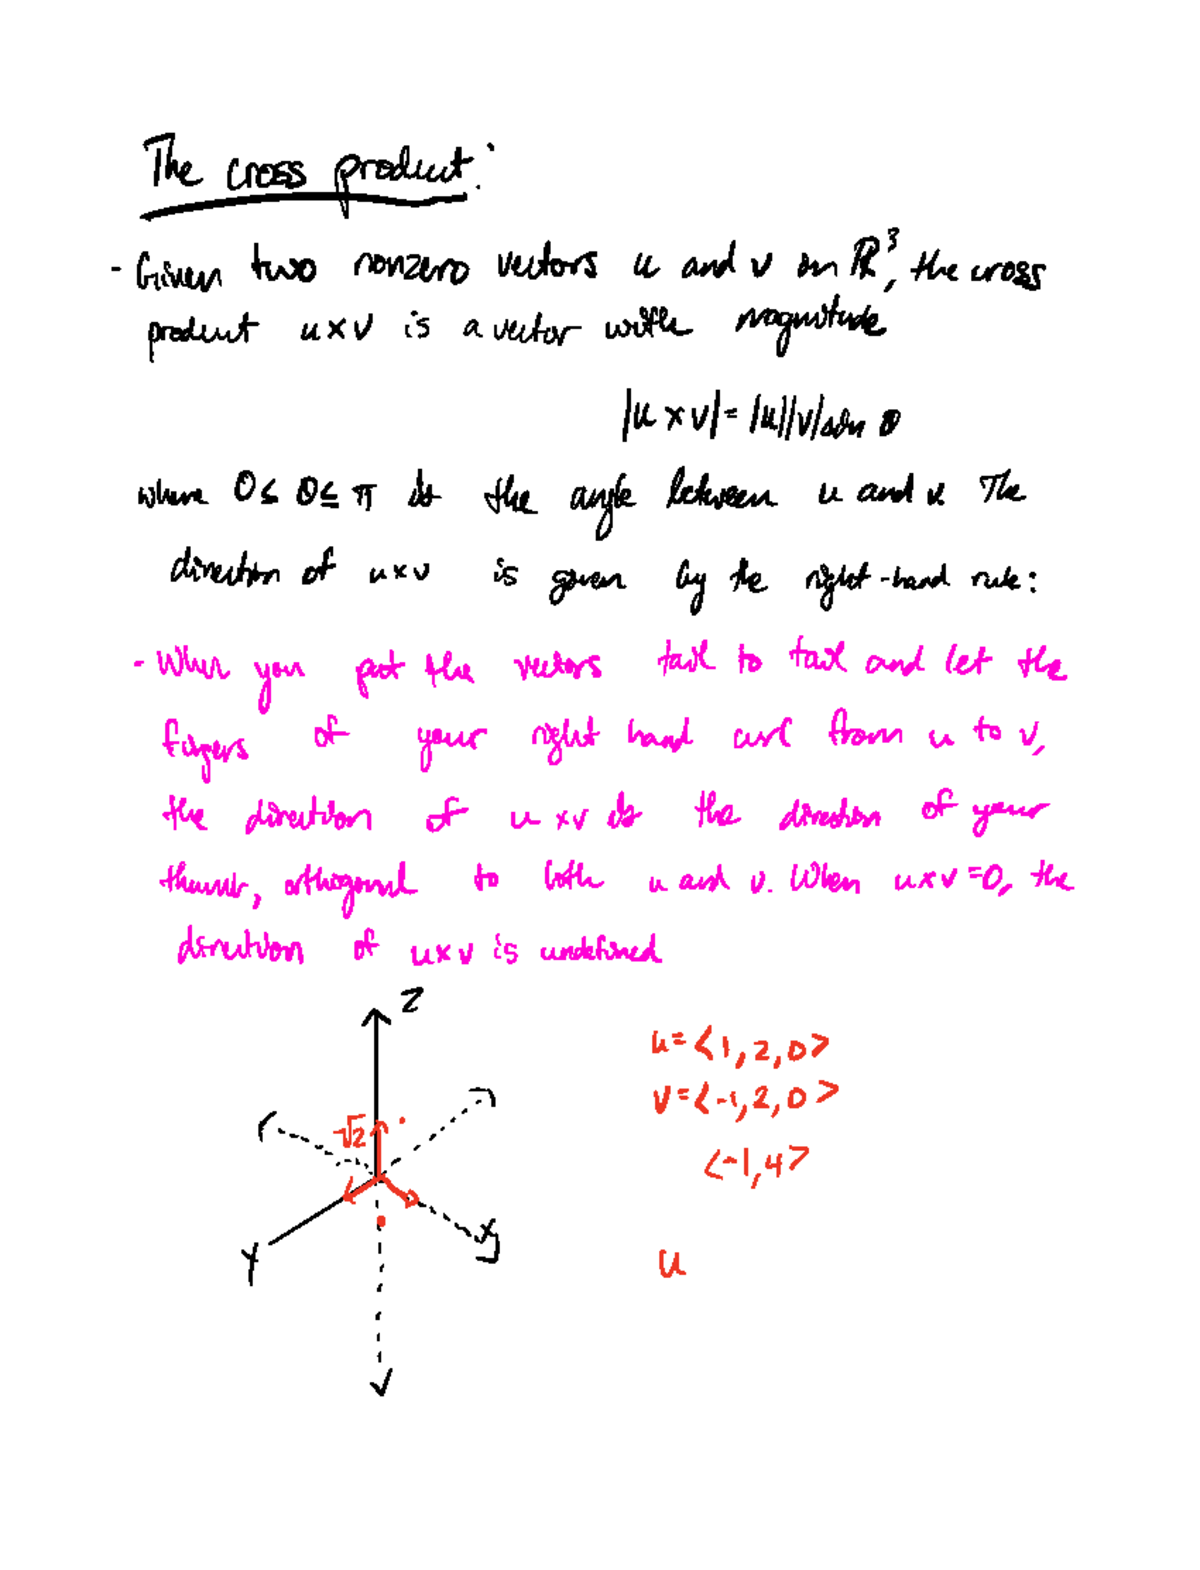 The cross product:
- Given two nonzero vectors u and v in ℝ³, the cross
product u×v is a vector with magnitude
|u × v| = |u||v| sin θ
where 0 ≤ θ ≤ π is the angle between u and v. The
direction of u×v is given by the right-hand rule:
- When you put the vectors tail to tail and let the
fingers of your right hand curl from u to v,
the direction of u×v is the direction of your
thumb, orthogonal to both u and v. When u×v=0, the
direction of u×v is undefined
Z
u=<1,2,0>
v=<-1,2,0>
√2
<-1,4>
Y
X
u